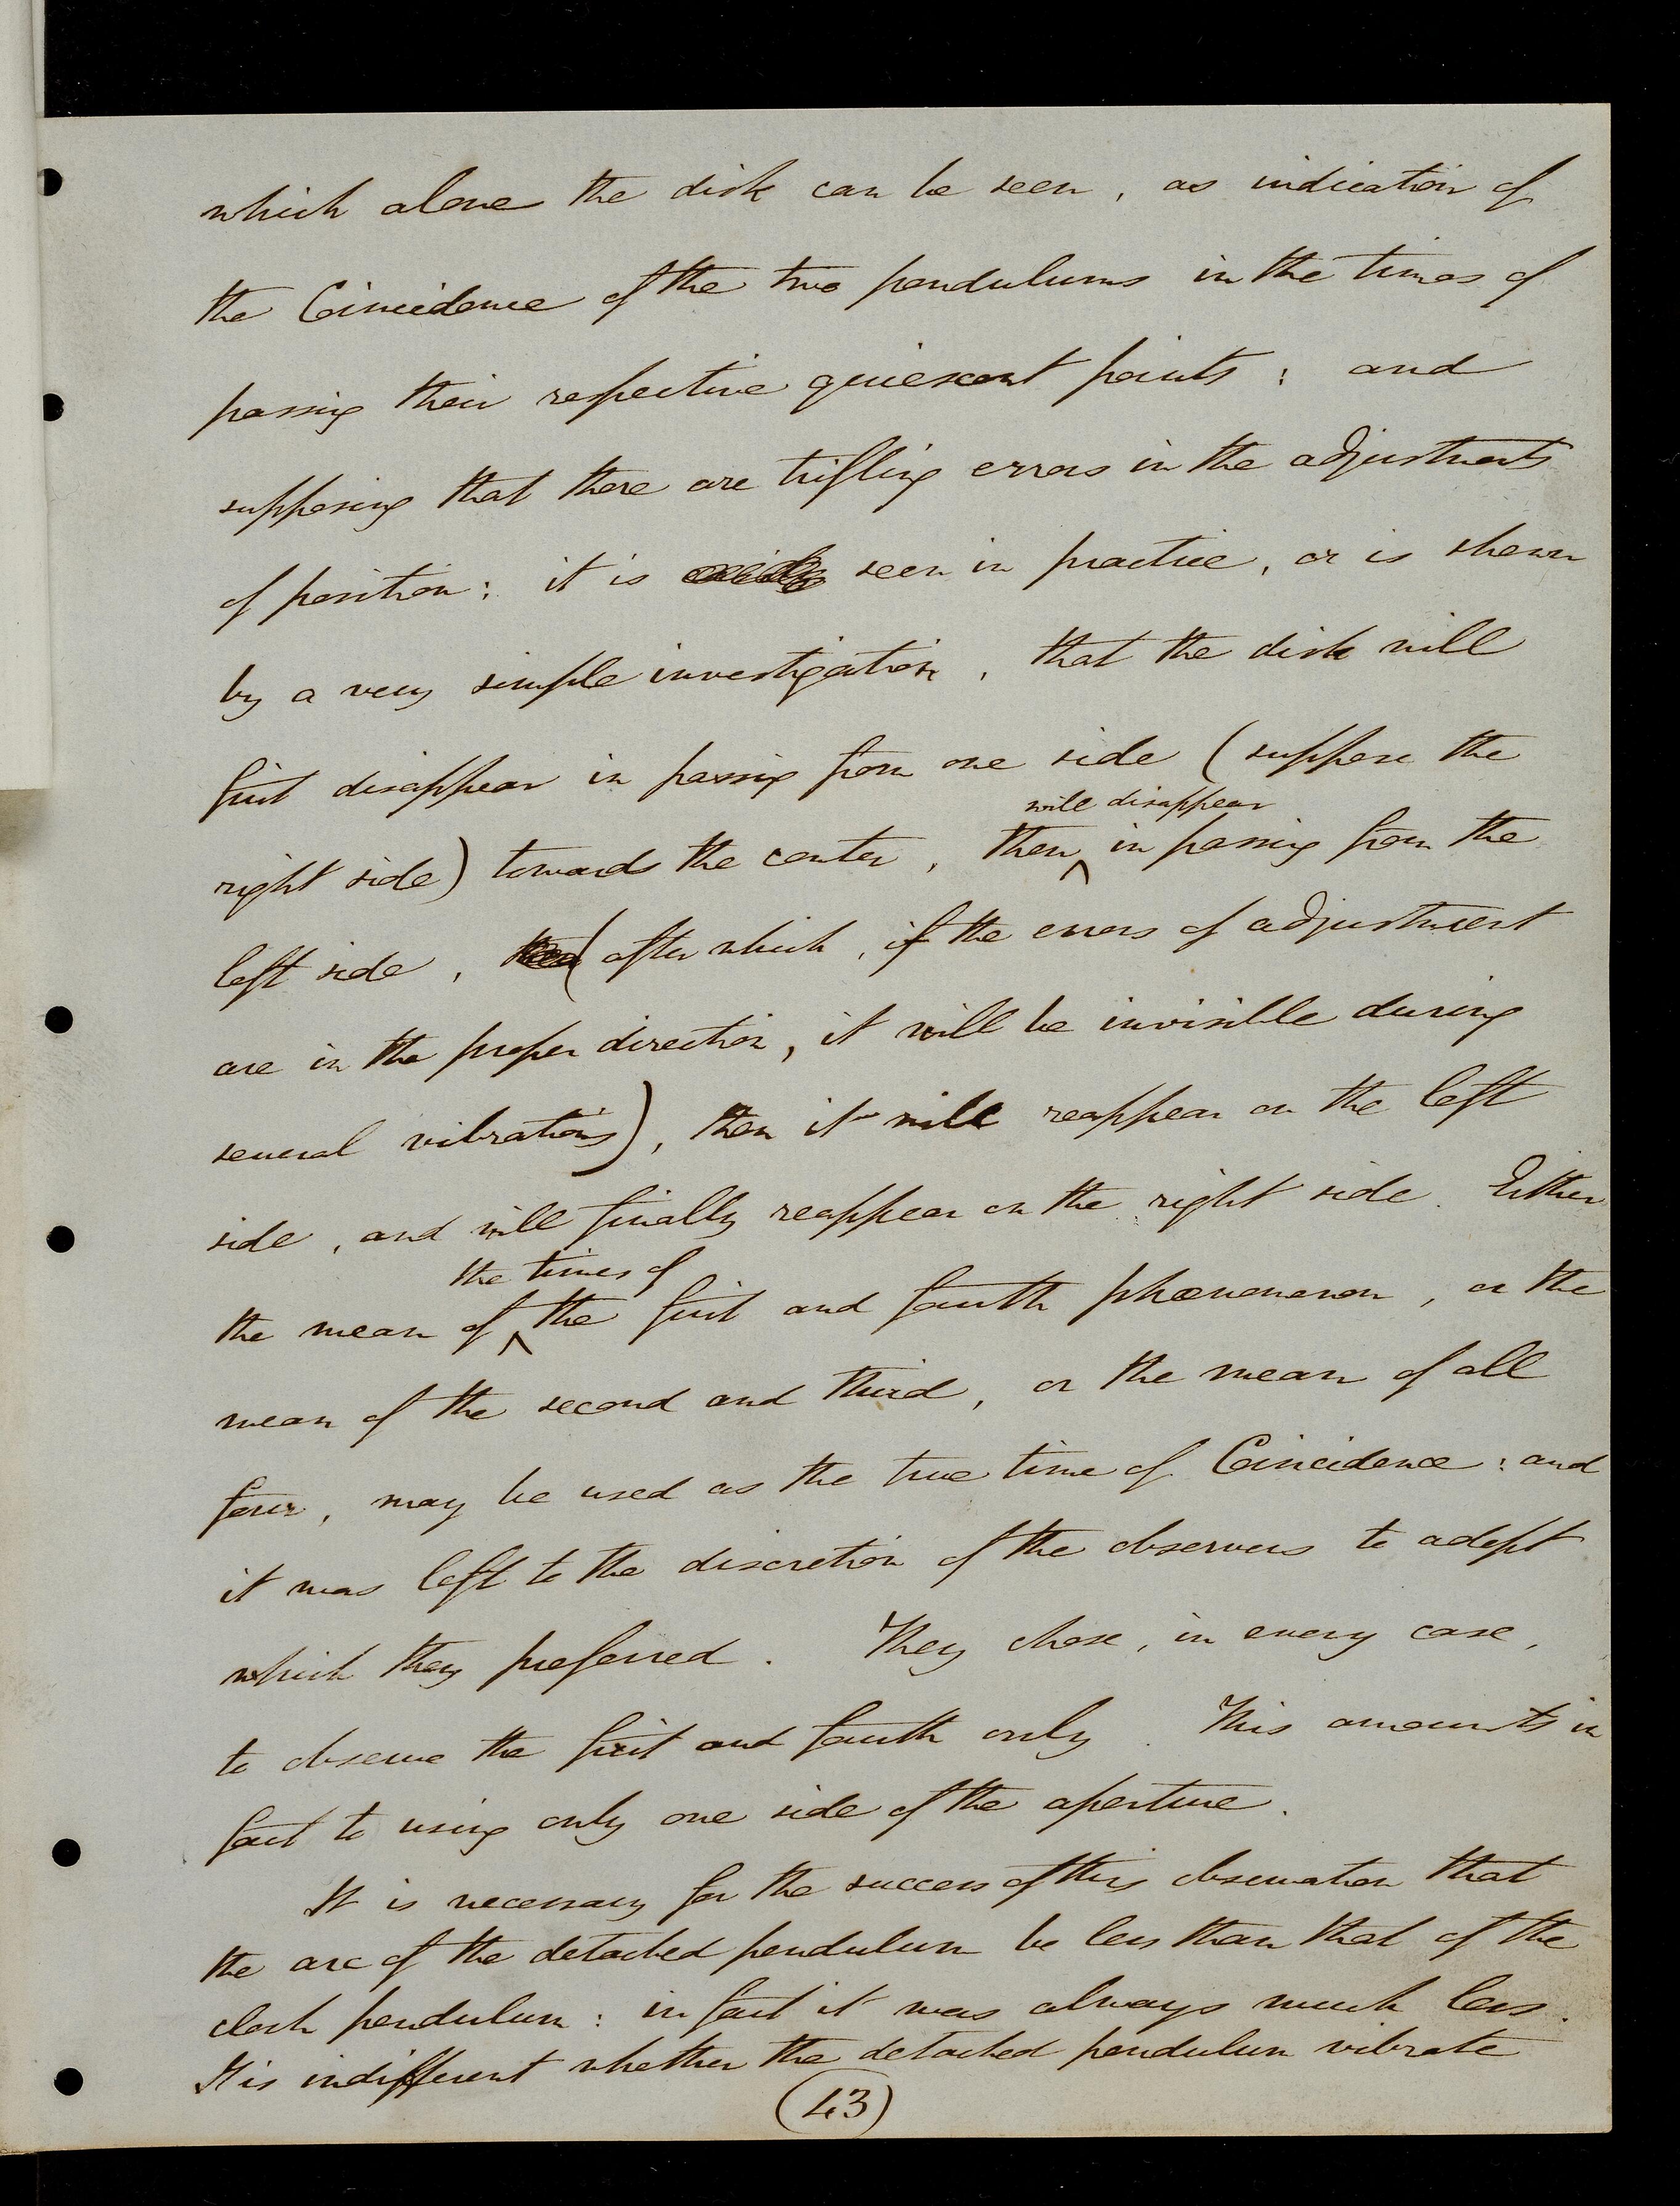 which alone the disk can be seen, as indication of
the Coincidence of the two pendulums in the times of
passing their respective quiescent points: and
supposing that there are trifling errors in the adjustments
of position: it is seen in practice, or is shewn
by a very simple investigation, that the disk will
first disappear in passing from one side (suppose the
will disappear
right side) towards the center, then ^ in passing from the
left side, (after which, if the errors of adjustment
are in the proper direction, it will be invisible during
several vibrations), then it will reappear on the left
side, and will finally reappear on the right side. Either
the times of
the mean of ^ the first and fourth phœnomenon, or the
mean of the second and third, or the mean of all
four, may be used as the true time of Coincidence: and
it was left to the discretion of the observers to adopt
which they preferred. They chose, in every case,
to observe the first and fourth only. This amounts in
fact to using only one side of the aperture.
It is necessary for the success of this observation that
the arc of the detached pendulum be less than that of the
clock pendulum: in fact it was always much less.
It is indifferent whether the detached pendulum vibrate
(43)